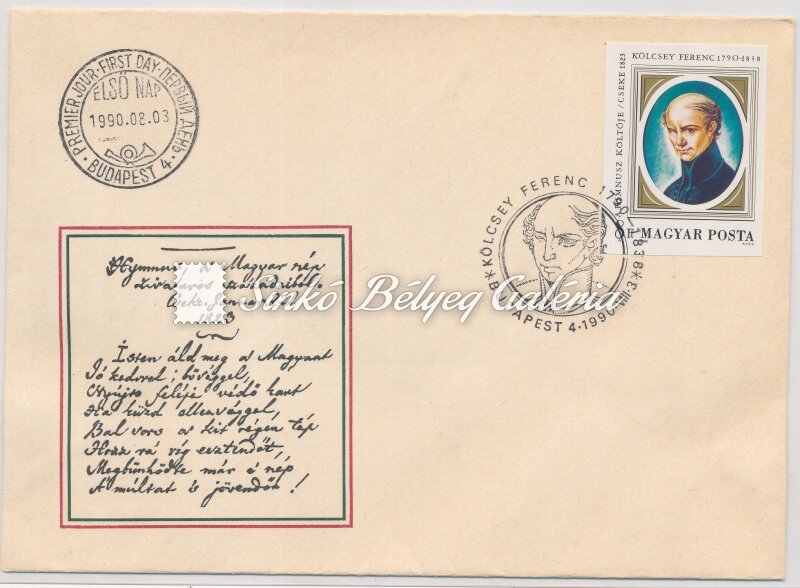 PREMIER JOUR · FIRST DAY · ПЕРВЫЙ ДЕНЬ
ELSŐ NAP
1990.08.03
· BUDAPEST 4 ·
KÖLCSEY FERENC 1790-1838
HIMNUSZ KÖLTŐJE / CSEKE 1823
MAGYAR POSTA
*KÖLCSEY FERENC 1790-1838*
BUDAPEST 4 · 1990 · VIII · 3
Hymnus, a Magyar nép
zivataros századaiból.
Cseke. Januar
1823
Sinkó Bélyeg Galéria
Isten áld meg a Magyart
Jó kedvvel, bőséggel,
Nyújts feléje védő kart
Ha küzd ellenséggel,
Bal sors a kit régen tép
Hozz rá víg esztendőt,
Megbűnhödte már e' nép
A' múltat 's jövendőt!